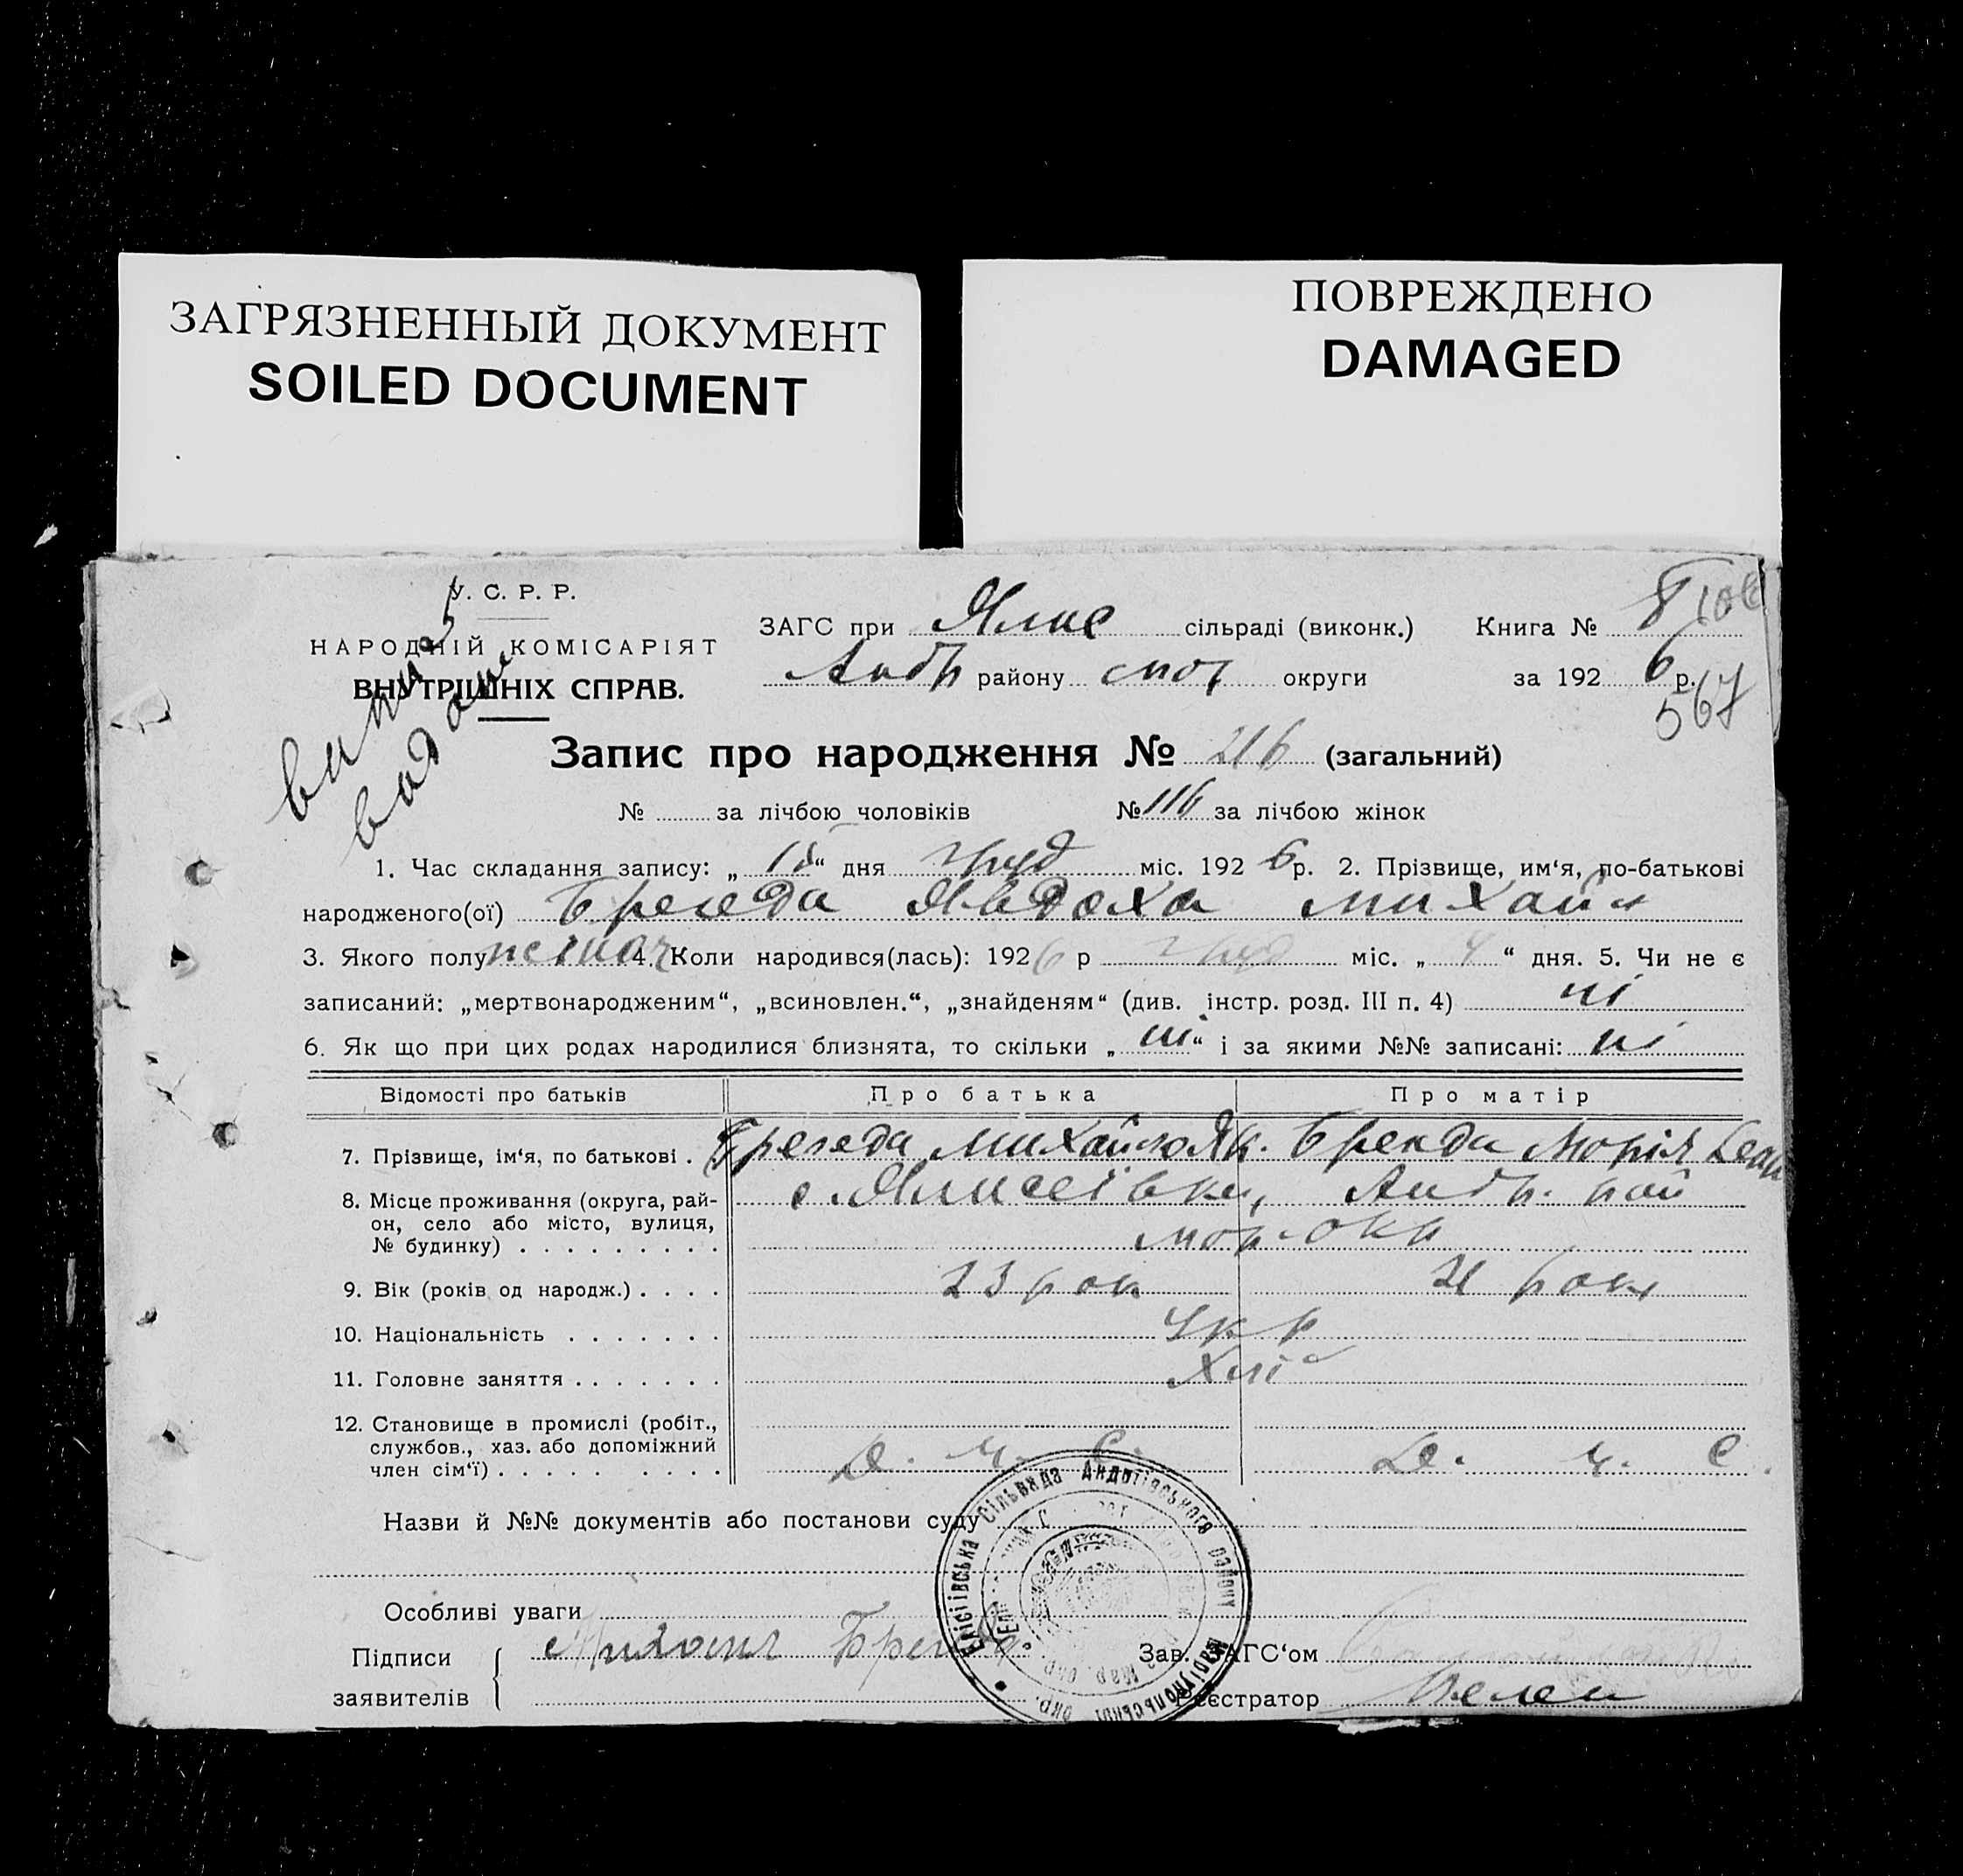 ЗАГРЯЗНЕННЫЙ ДОКУМЕНТ
SOILED DOCUMENT
ПОВРЕЖДЕНО
DAMAGED
У. С. Р. Р.
НАРОДНІЙ КОМІСАРІЯТ
ВНУТРІШНІХ СПРАВ.
ЗАГС при сільраді (виконк.) Книга № 8
Андр району округи за 1926 р.
567
Запис про народження № 216 (загальний)
№ за лічбою чоловіків № 116 за лічбою жінок
1. Час складання запису: „ “ дня груд міс. 1926 р. 2. Прізвище, им‘я, по-батькові
народженого(ої) Явдоха Михайл
3. Якого полу жіноч 4. Коли народився(лась): 1926 р груд міс. „ 4 “ дня. 5. Чи не є
записаний: „мертвонародженим“, „всиновлен.“, „знайденям“ (див. інстр. розд. III п. 4) ні
6. Як що при цих родах народилися близнята, то скільки „ ні “ і за якими №№ записані: ні
Відомості про батьків Про батька Про матір
7. Прізвище, ім‘я, по батькові . Михайло Як. Марія
8. Місце проживання (округа, рай- с. Андр. рай
он, село або місто, вулиця,
№ будинку) . . . . . . . . . мар. окр
9. Вік (років од народж.) . . . . 23 рок 21 рок
10. Національність . . . . . . . Укр
11. Головне заняття . . . . . . . Хлі
12. Становище в промислі (робіт.,
службов., хаз. або допоміжний
член сім‘ї) . . . . . . . . . Д. Ч. С. Д. Ч. С.
Назви й №№ документів або постанови суду
Особливі уваги
Підписи Михаил
заявителів
Зав. ЗАГС‘ом
Реєстратор
Сільрада Андріївського району Маріупольської окр.